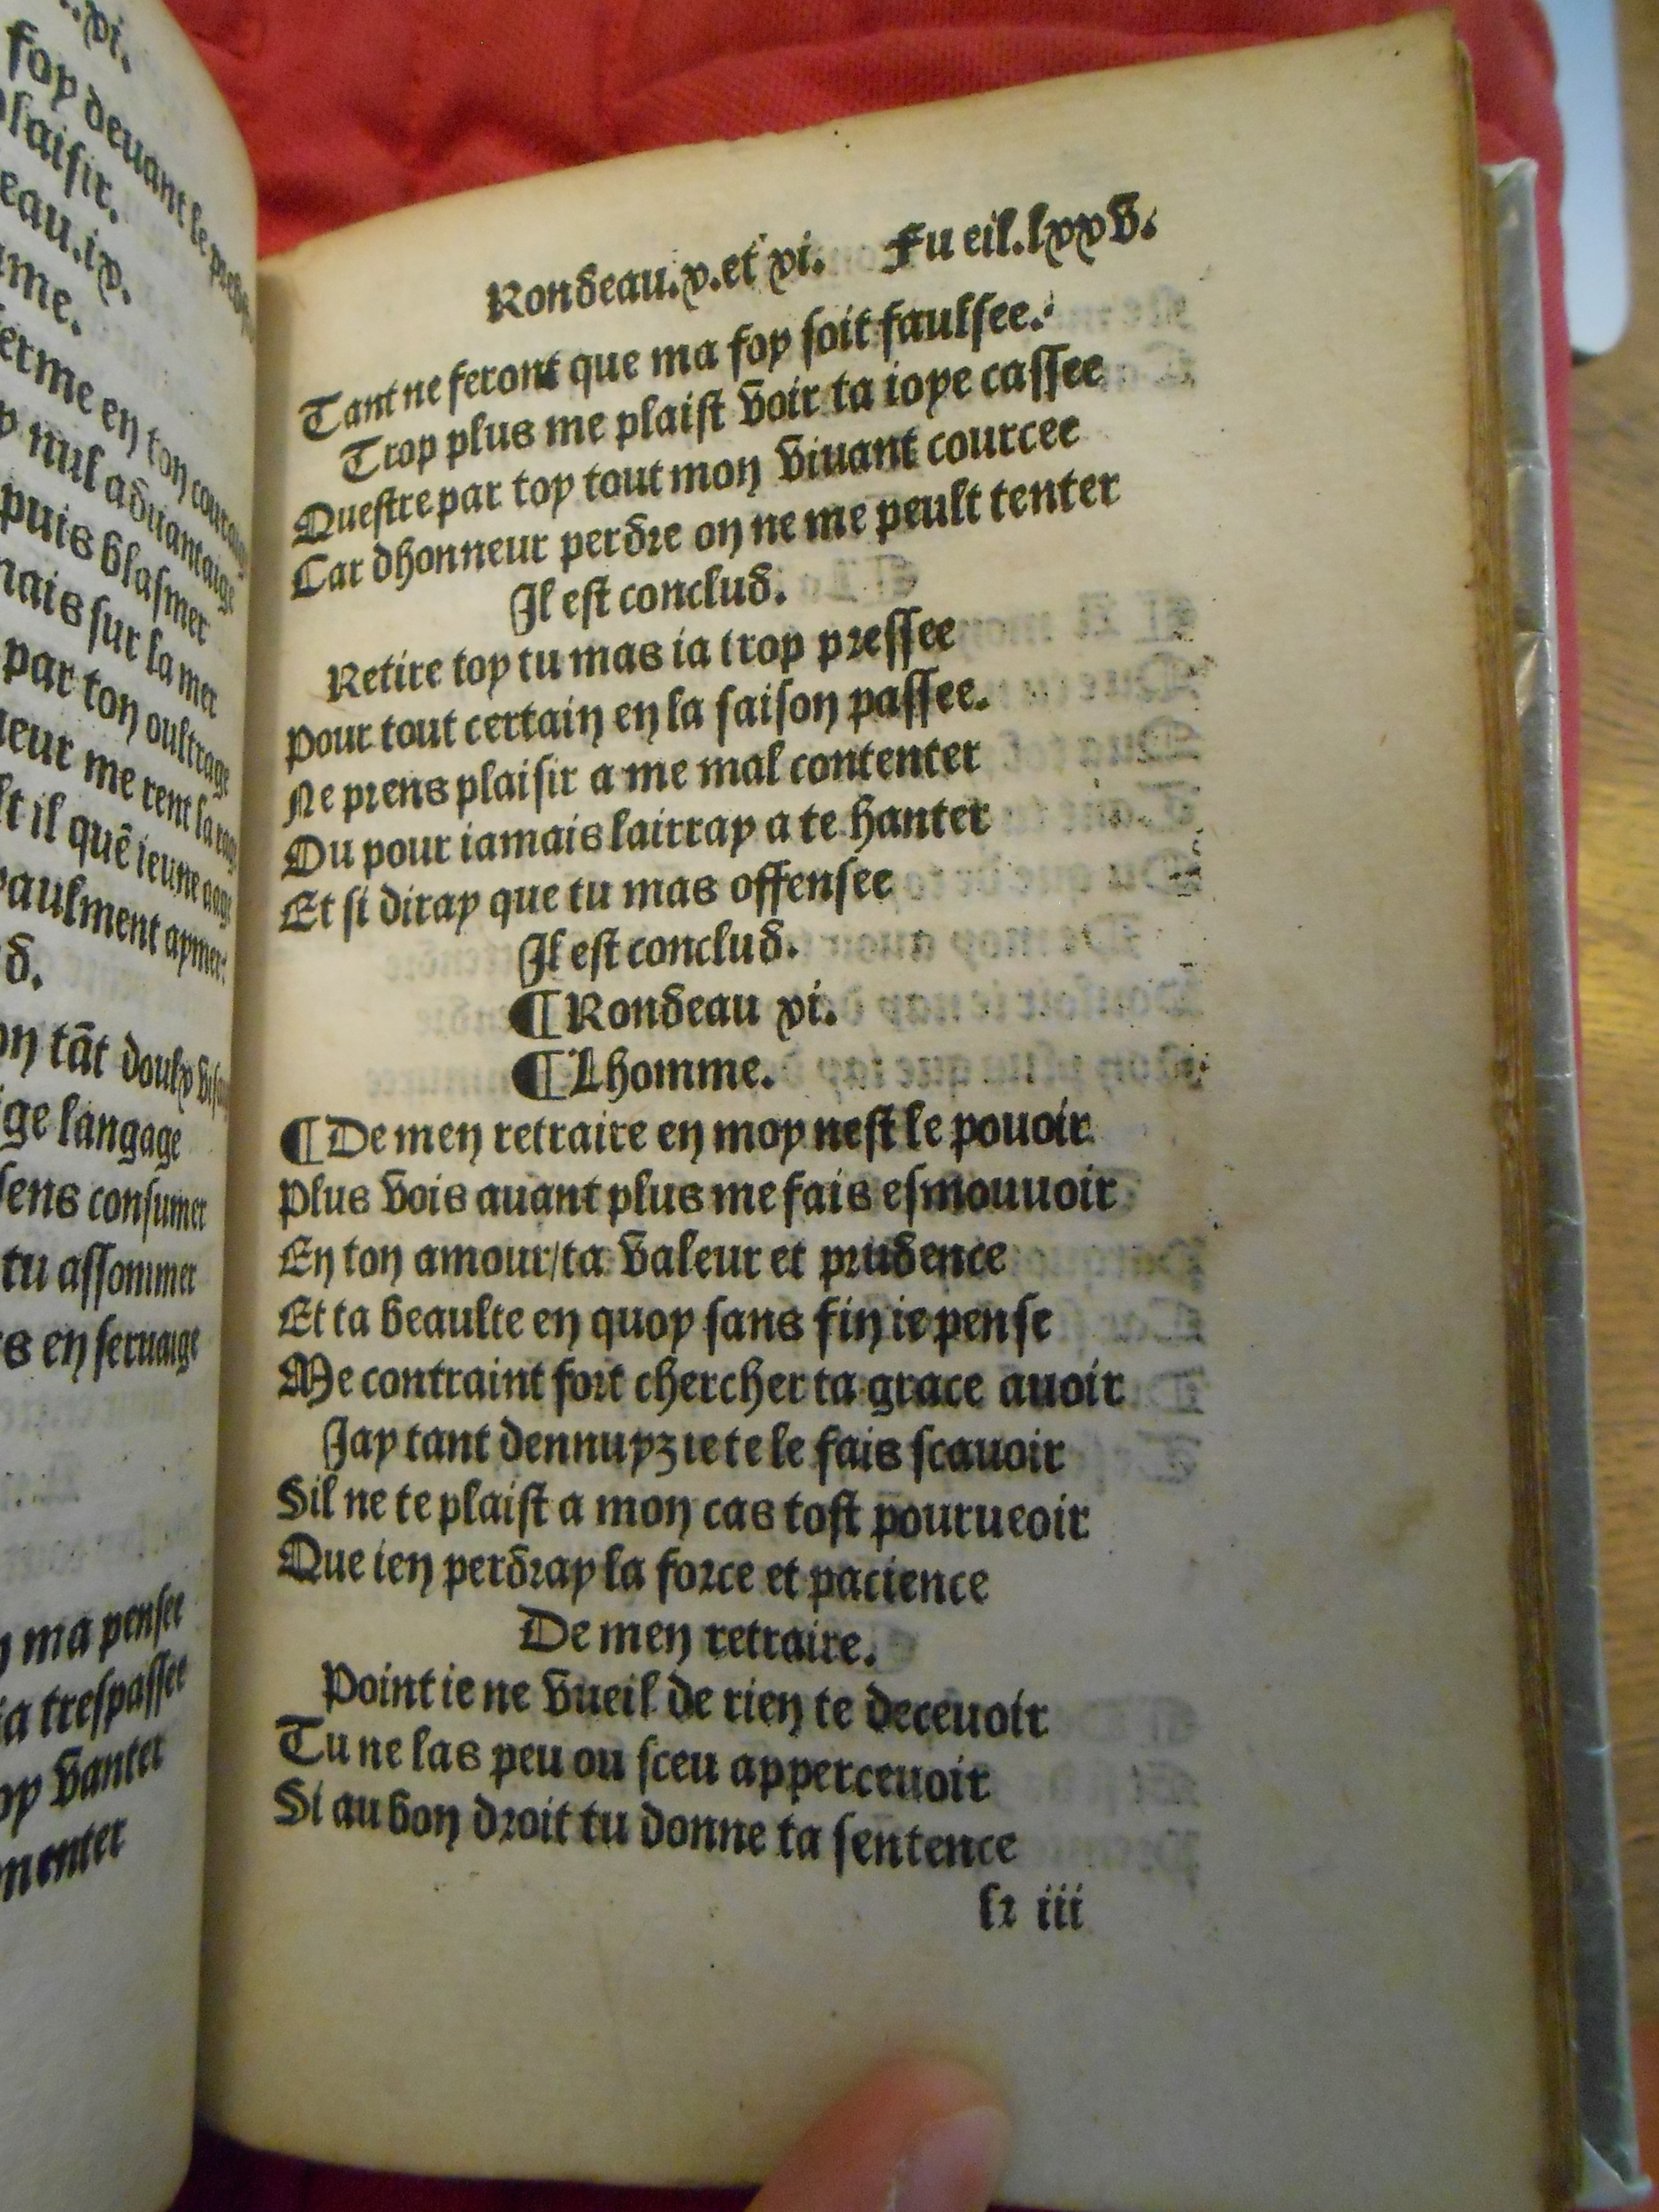 .xi.
foy devant le
plaisir.
eau.ix.
me.
erme en ton couraige
nul advantaige
puis blasmer
mais sur la mer
par ton oultrage
eur me rent la rage
il quẽ ieune aage
aulment aymer:
d.
on tãt doulx
ge langage
sens consumer
tu assommer
s en servaige
ma pensee
ia trespassee
oy vanter
menter
Rondeau.x.et xi. Fueil.lxxv.
Tant ne feront que ma foy soit faulsee.
Trop plus me plaist voir ta ioye cassee
Questre par toy tout mon vivant courcee
Car dhonneur perdre on ne me peult tenter
Il est conclud.
Retire toy tu mas ia trop pressee
Pour tout certain en la saison passee.
Ne prens plaisir a me mal contenter
Ou pour iamais lairray a te hanter
Et si diray que tu mas offensee
Il est conclud.
¶Rondeau xi.
¶Lhomme.
¶De men retraire en moy nest le pouoir
Plus vois auant plus me fais esmouuoir
En ton amour/ta valeur et prudence
Et ta beaulte en quoy sans fin ie pense
Me contraint fort chercher ta grace auoir
Jay tant dennuyz ie te le fais scauoir
Sil ne te plaist a mon cas tost pourueoir
Que ien perdray la force et pacience
De men retraire.
Point ie ne vueil de rien te deceuoir
Tu ne las peu ou sceu apperceuoir
Si au bon droit tu donne ta sentence
k iii